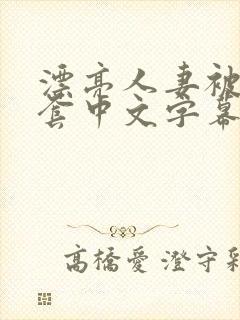 漂亮人妻被
套中文字幕
高橋愛 澄守彩